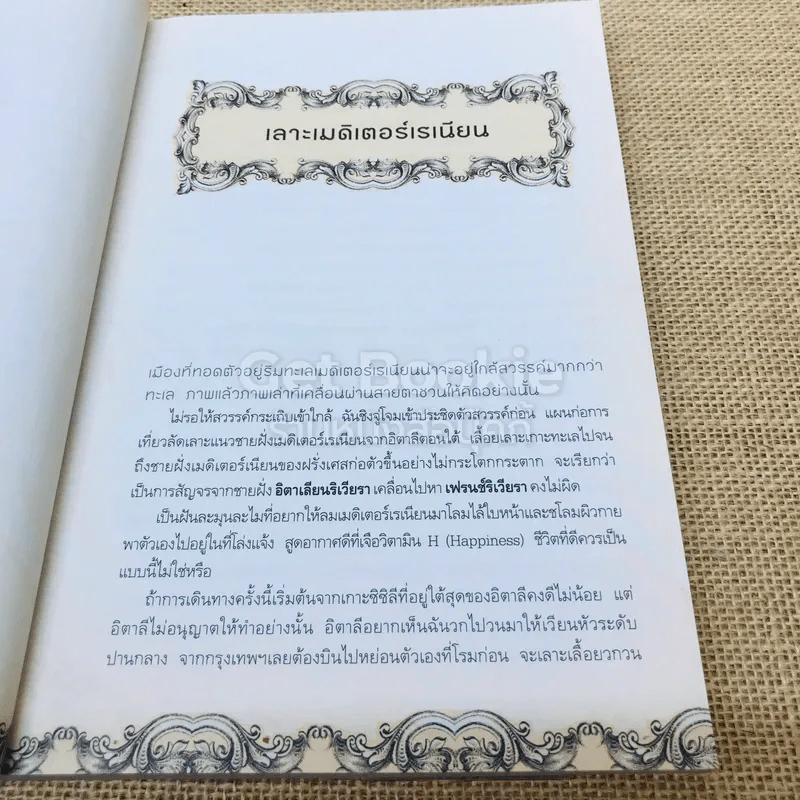 เลาะเมดิเตอร์เรเนียน
เมืองที่ทอดตัวอยู่ริมทะเลเมดิเตอร์เรเนียนน่าจะอยู่ใกล้สวรรค์มากกว่า
ทะเล ภาพแล้วภาพเล่าที่เคลื่อนผ่านสายตาชวนให้คิดอย่างนั้น
Get Bookie
ไม่รอให้สวรรค์กระเถิบเข้าใกล้ ฉันชิงจู่โจมเข้าประชิดตัวสวรรค์ก่อน แผนก่อการ
เที่ยวลัดเลาะแนวชายฝั่งเมดิเตอร์เรเนียนจากอิตาลีตอนใต้ เลื้อยเลาะเกาะทะเลไปจน
ถึงชายฝั่งเมดิเตอร์เนียนของฝรั่งเศสก่อตัวขึ้นอย่างไม่กระโตกกระตาก จะเรียกว่า
เป็นการสัญจรจากชายฝั่ง อิตาเลียนริเวียรา เคลื่อนไปหา เฟรนช์ริเวียรา คงไม่ผิด
เป็นฝันละมุนละไมที่อยากให้ลมเมดิเตอร์เรเนียนมาโลมไล้ใบหน้าและชโลมผิวกาย
พาตัวเองไปอยู่ในที่โล่งแจ้ง สูดอากาศดีที่เจือวิตามิน H (Happiness) ชีวิตที่ดีควรเป็น
แบบนี้ไม่ใช่หรือ
ถ้าการเดินทางครั้งนี้เริ่มต้นจากเกาะซิซิลีที่อยู่ใต้สุดของอิตาลีคงดีไม่น้อย แต่
อิตาลีไม่อนุญาตให้ทำอย่างนั้น อิตาลีอยากเห็นฉันวกไปวนมาให้เวียนหัวระดับ
ปานกลาง จากกรุงเทพฯเลยต้องบินไปหย่อนตัวเองที่โรมก่อน จะเลาะเลื้อยวกวน